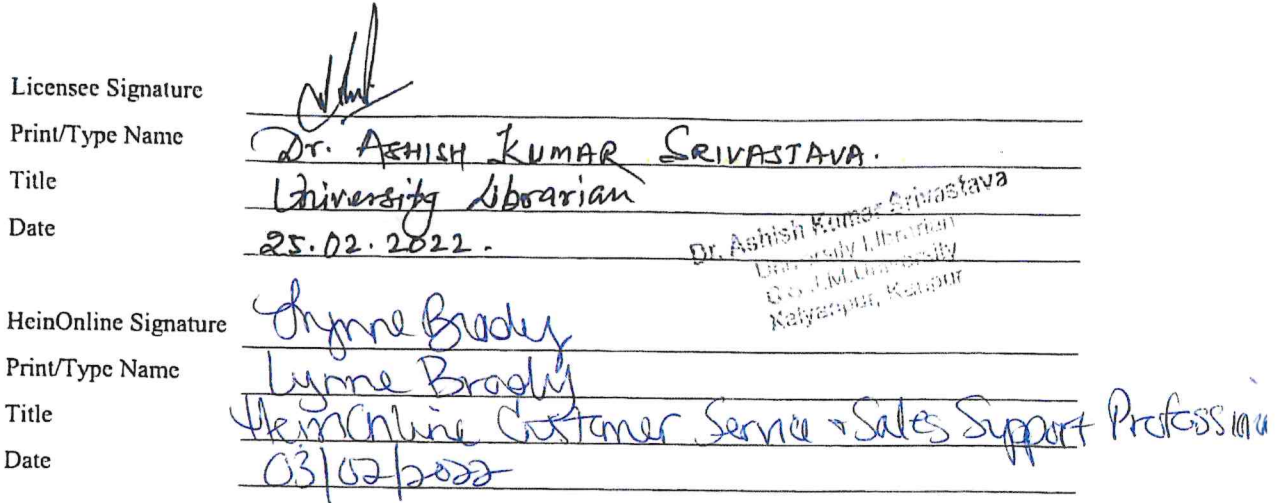 Licensee Signature
Print/Type Name Dr. ASHISH KUMAR SRIVASTAVA.
Title University Librarian
Date 25.02.2022.
Dr. Ashish Kumar Srivastava
University Librarian
C.S.J.M. University
Kalyanpur, Kanpur
HeinOnline Signature Lynne Brady
Print/Type Name Lynne Brady
Title HeinOnline Customer Service + Sales Support Professiona
Date 03/02/2022